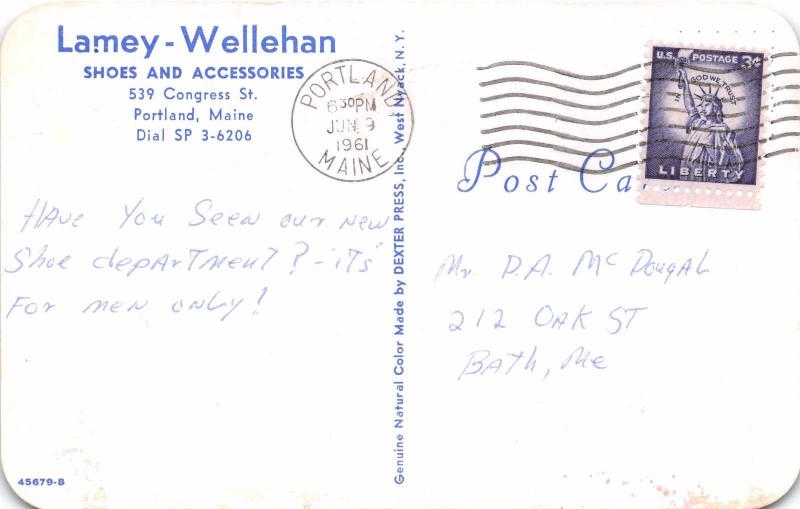 Lamey-Wellehan
SHOES AND ACCESSORIES
539 Congress St.
Portland, Maine
Dial SP 3-6206
PORTLAND,
6 30 PM
JUN 9
1961
MAINE
U.S. POSTAGE 3¢
IN GOD WE TRUST
LIBERTY
Post Ca
HAVE You Seen our new
Shoe depARTMENT? - iT's
For men only!
Genuine Natural Color Made by DEXTER PRESS, Inc., West Nyack, N. Y.
Mr D.A. McDougAL
212 OAK ST
BATH, Me
45679-B